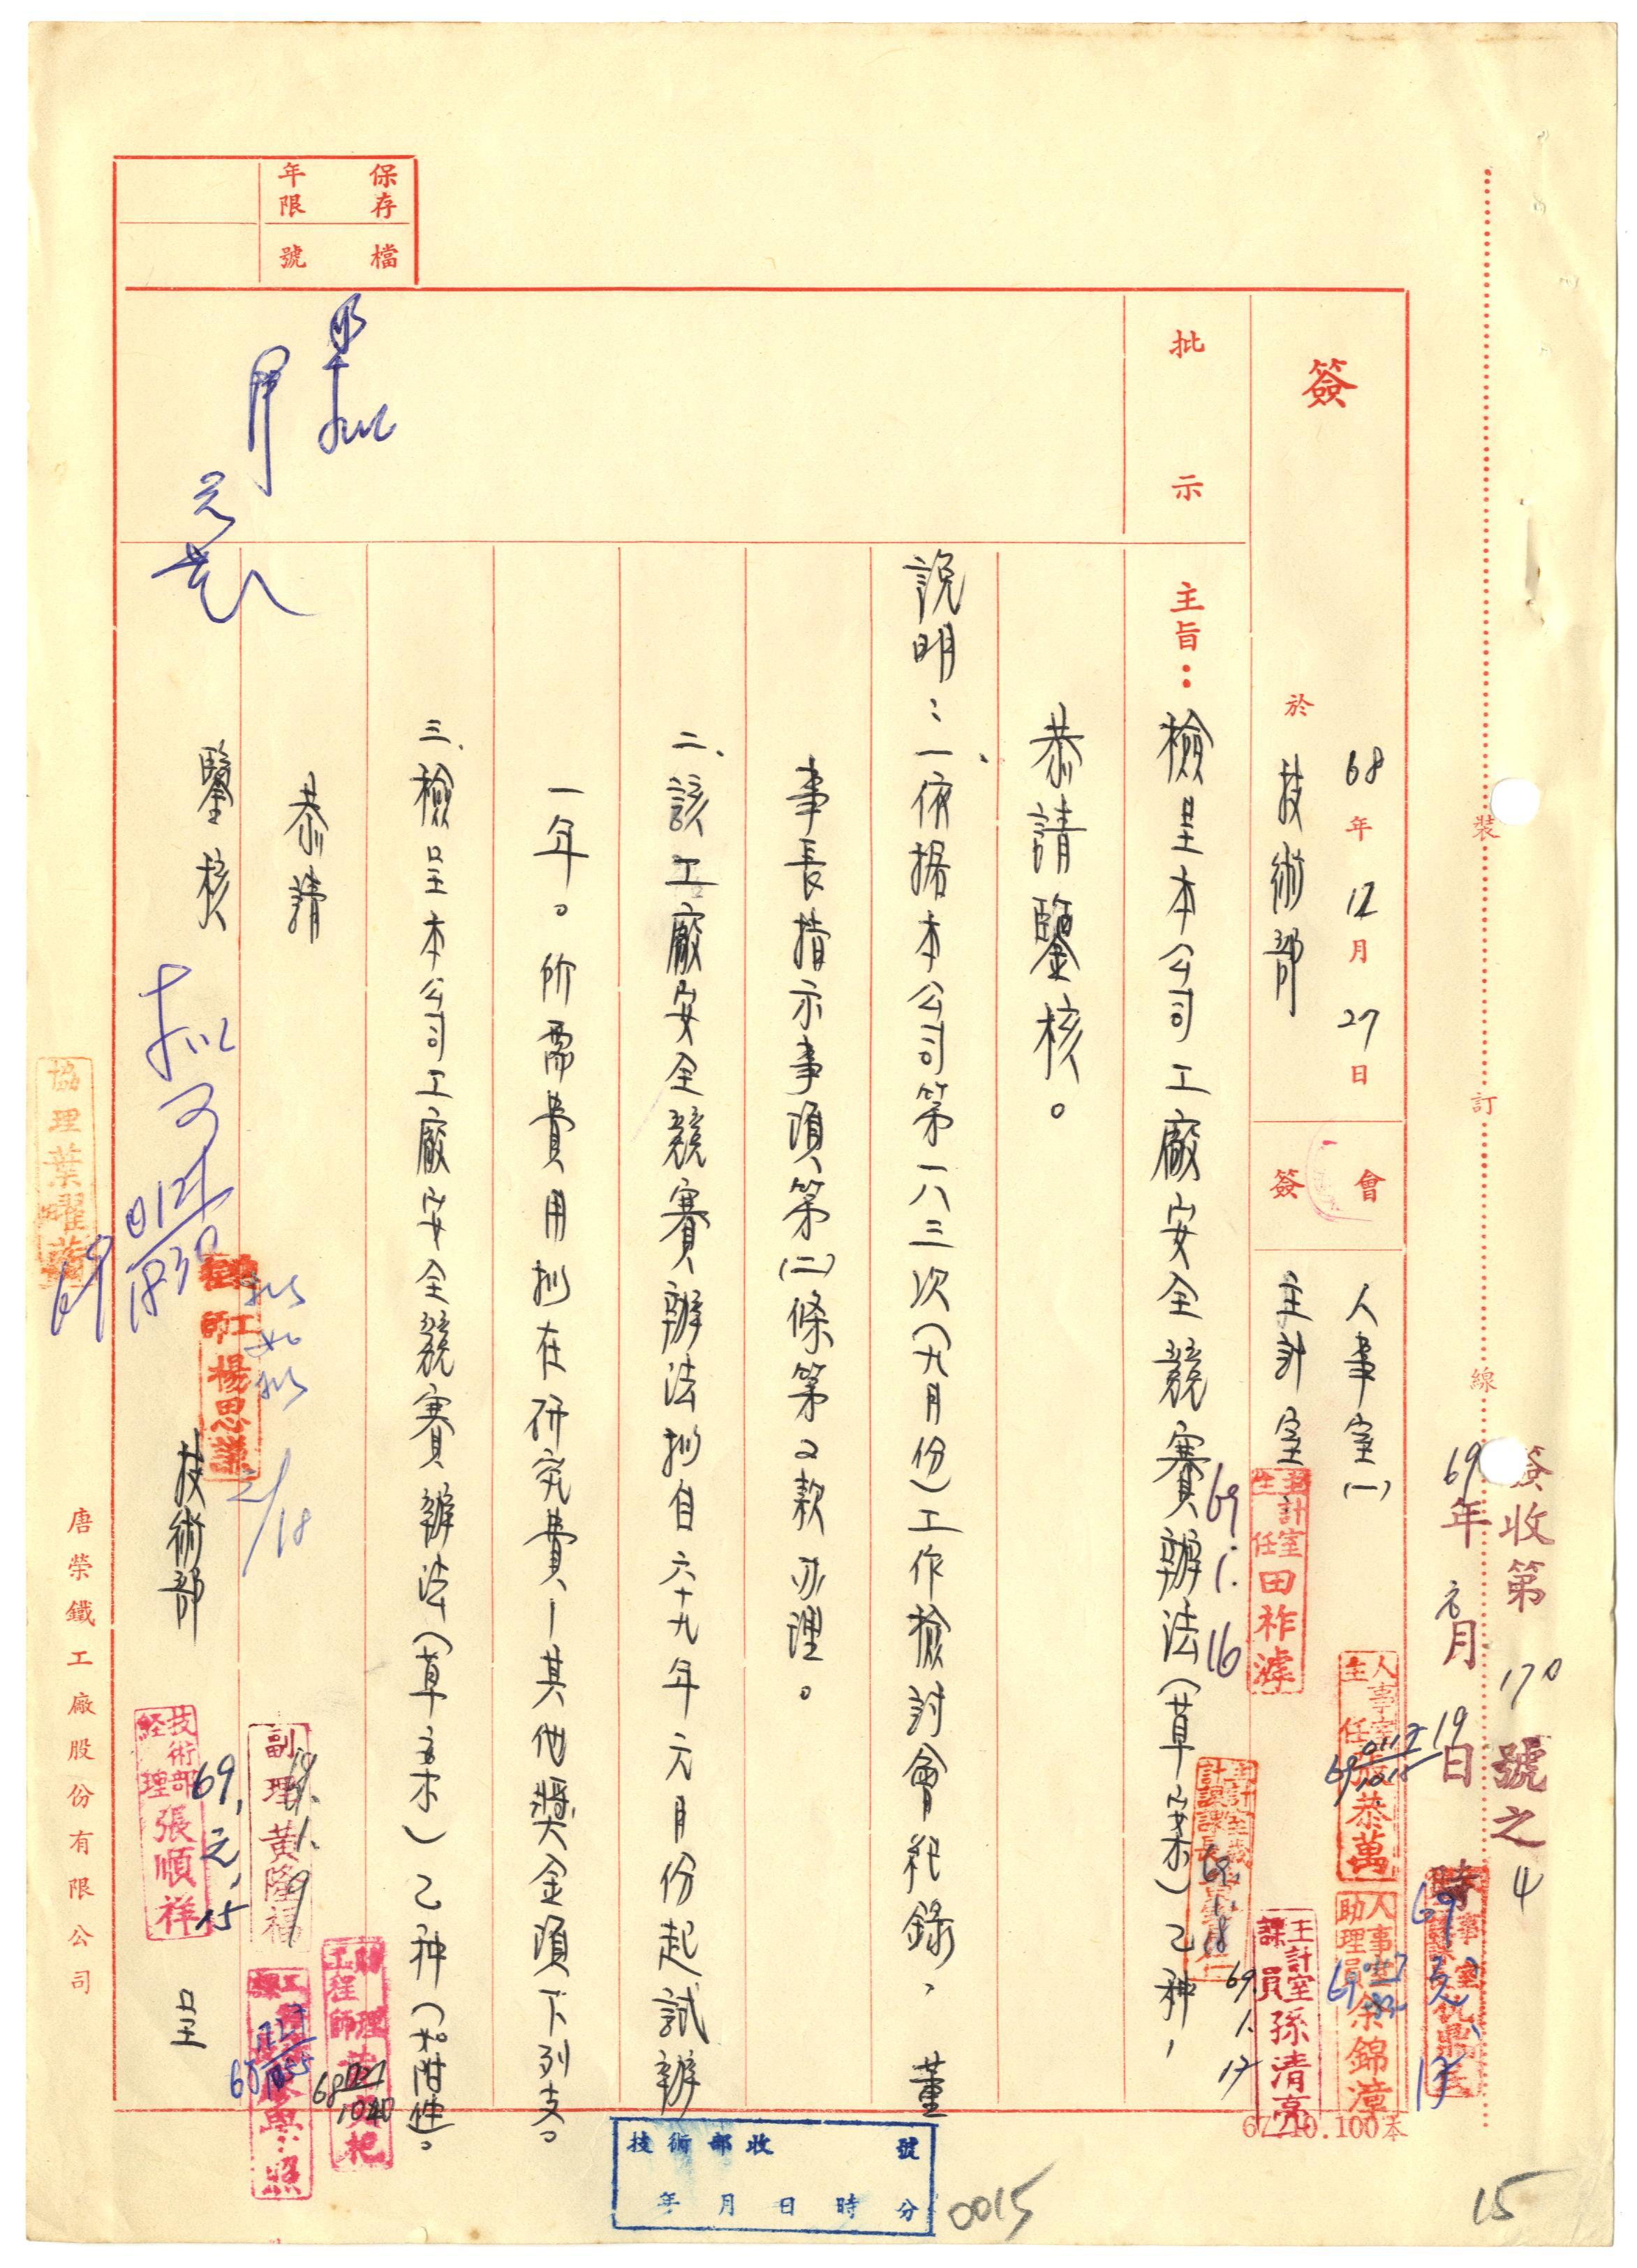 簽
68年12月27日
於 技術部
會簽
人事室(一)
主計室
批示
主旨：檢呈本公司工廠安全競賽辦法(草案)乙种，
恭請鑒核。
說明：一、依据本公司第一八三次(九月份)工作檢討會紀錄、董
事長指示事項第(二)條第2款办理。
二、該工廠安全競賽辦法拟自六十九年元月份起試辦
一年。所需費用拟在研究費－其他獎金項下列支。
三、檢呈本公司工廠安全競賽辦法(草案)乙种(如附件)。
恭請
鑒核
技術部 呈
保存年限
檔號
裝訂線
簽收第170號之4
69年元月19日 時
主計室主任 田祚
69.1.16
主計室課員 孫清亮
69.1.17
人事室主任 張恭萬
人事室助理員 余錦漳
技術部經理 張順祥
69.元.15
副理 黃隆福
工程師 楊思謙
協理 葉曜
拟如拟
2/18
拟可
唐榮鐵工廠股份有限公司
67.10.100本
技術部收 號
年月日時分
0015
15